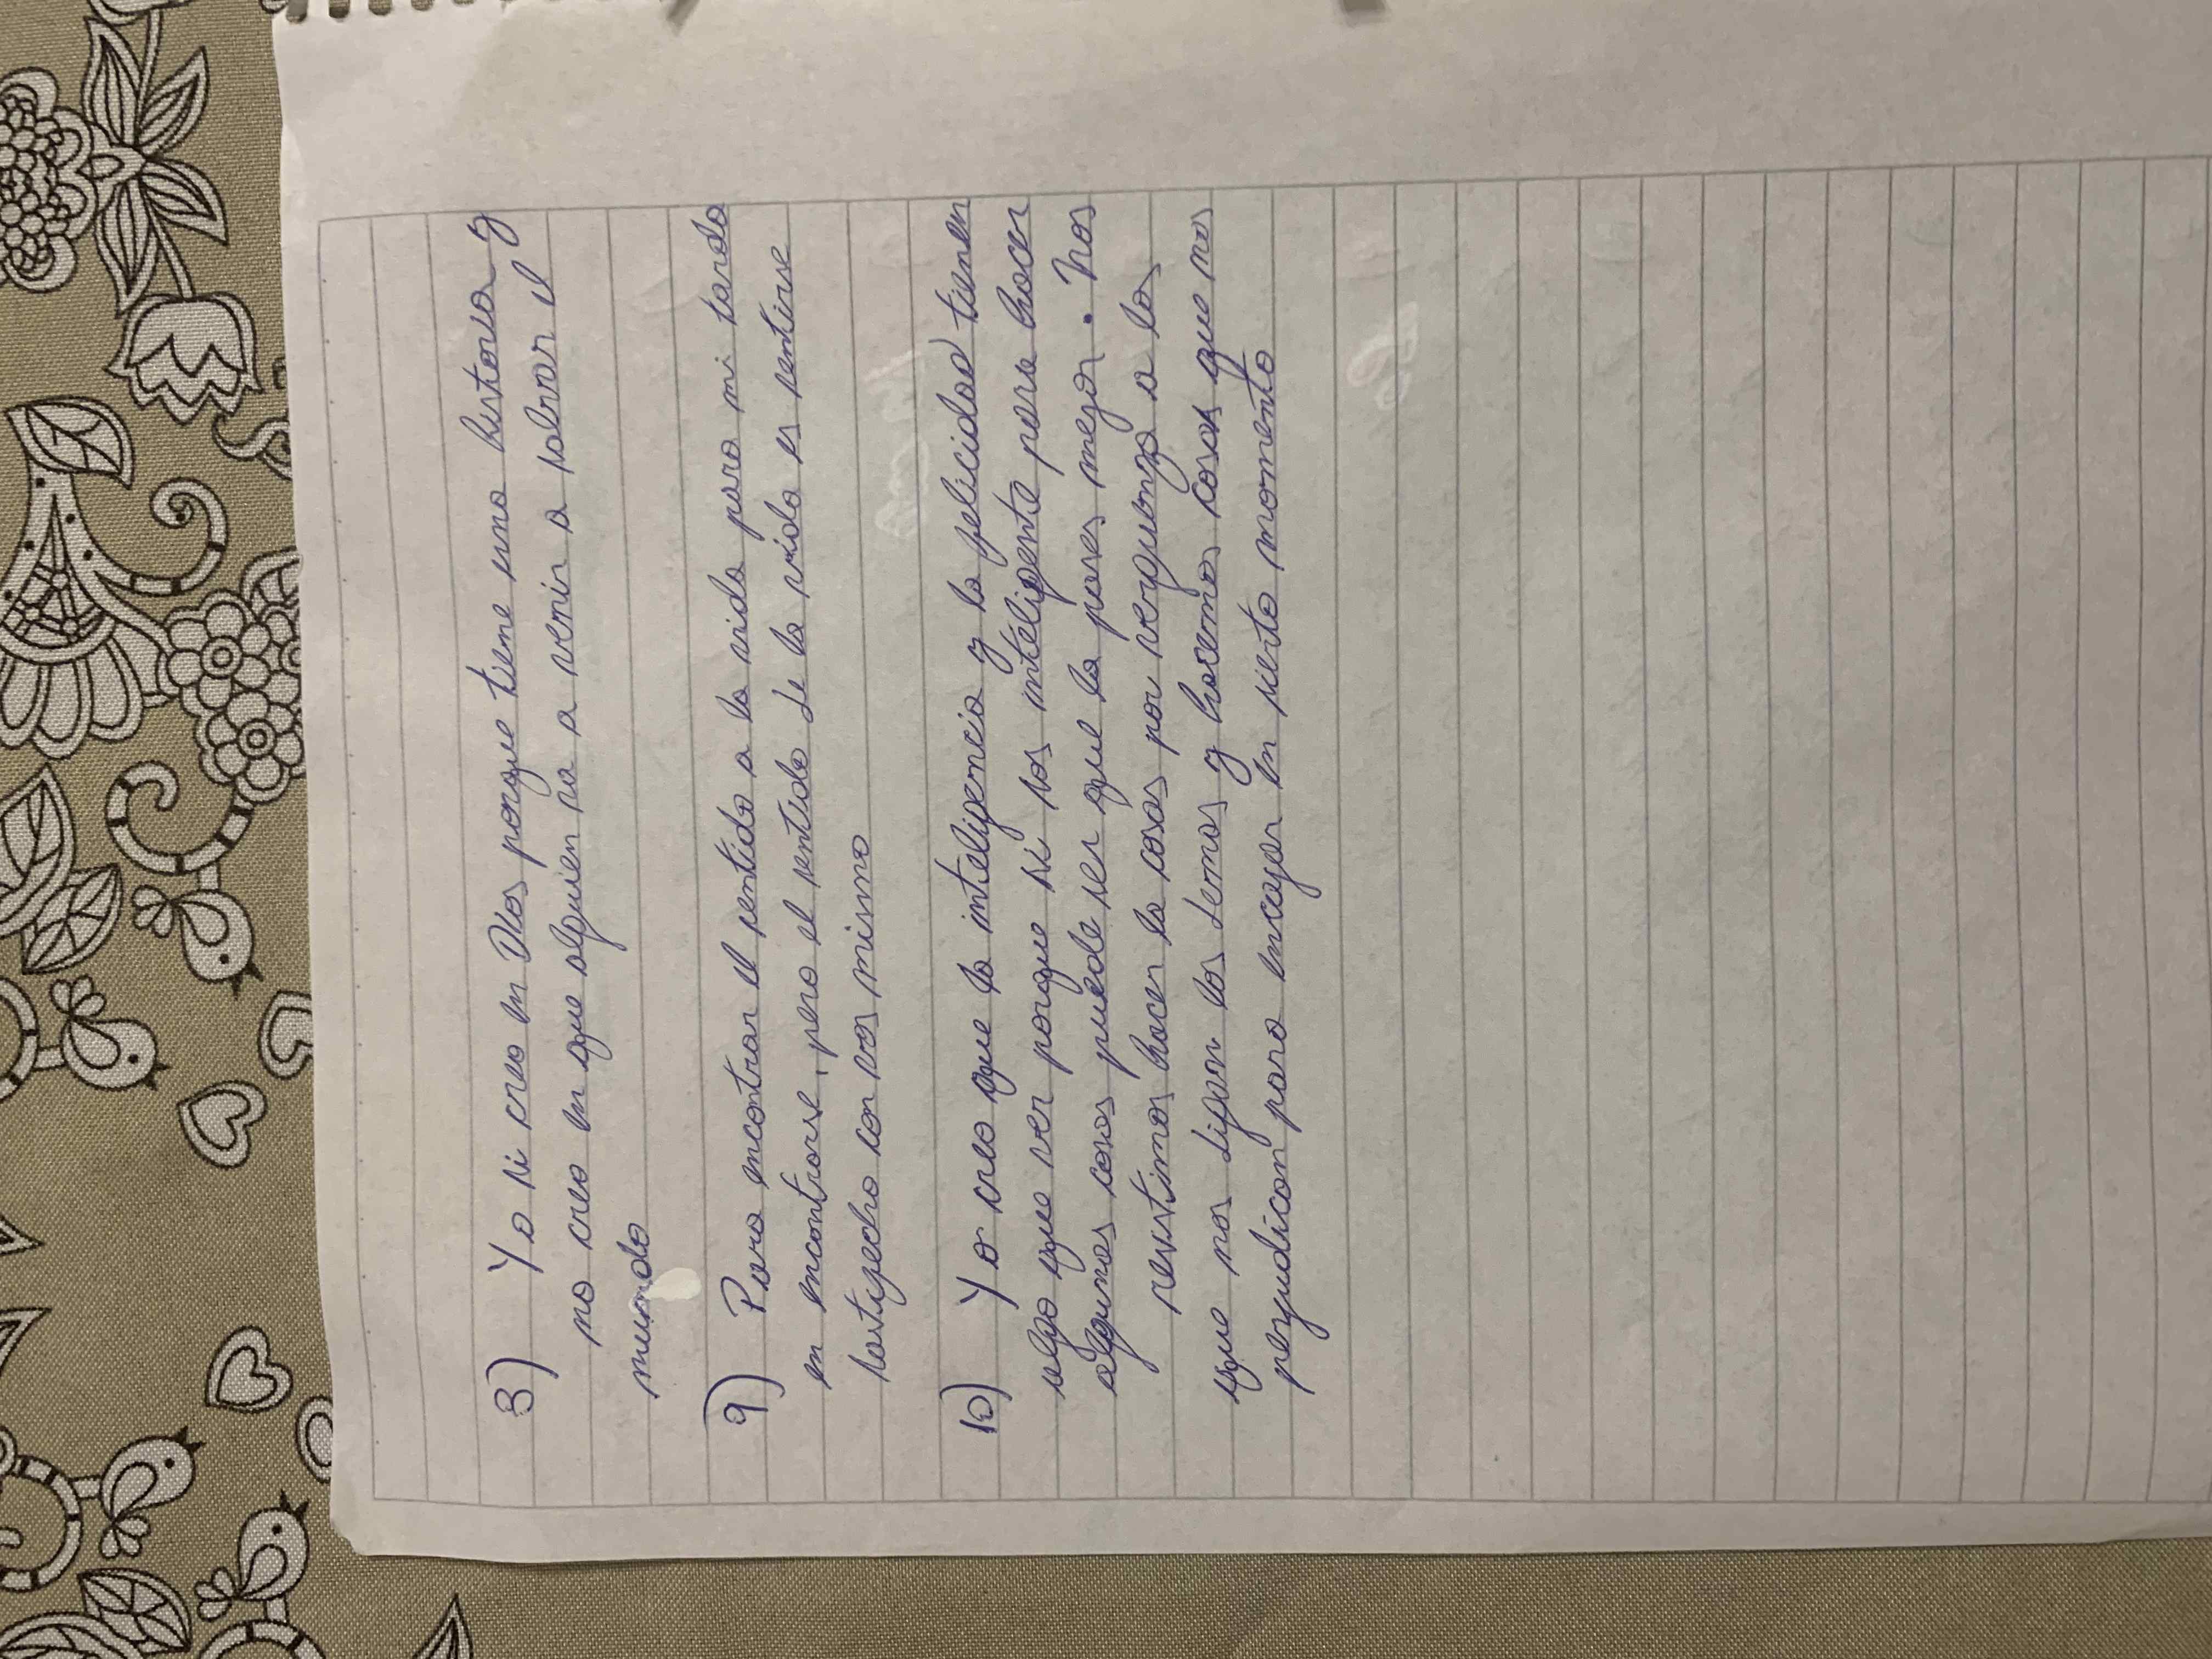 8) Yo si creo en Dios porque tiene una historia y
no creo en que alguien va a venir a salvar el
mundo
9) Para encontrar el sentido a la vida para mi tarda
en encontrarse, pero el sentido de la vida es sentirse
satisfecho con vos mismo
10) Yo creo que la inteligencia y la felicidad tienen
algo que ver porque si sos inteligente para hacer
algunas cosas puede ser que la pases mejor. Nos
resistimos hacer la cosas por verguenza a los
que nos digan los demas y hacemos cosas que nos
perjudican para encajar en sierto momento